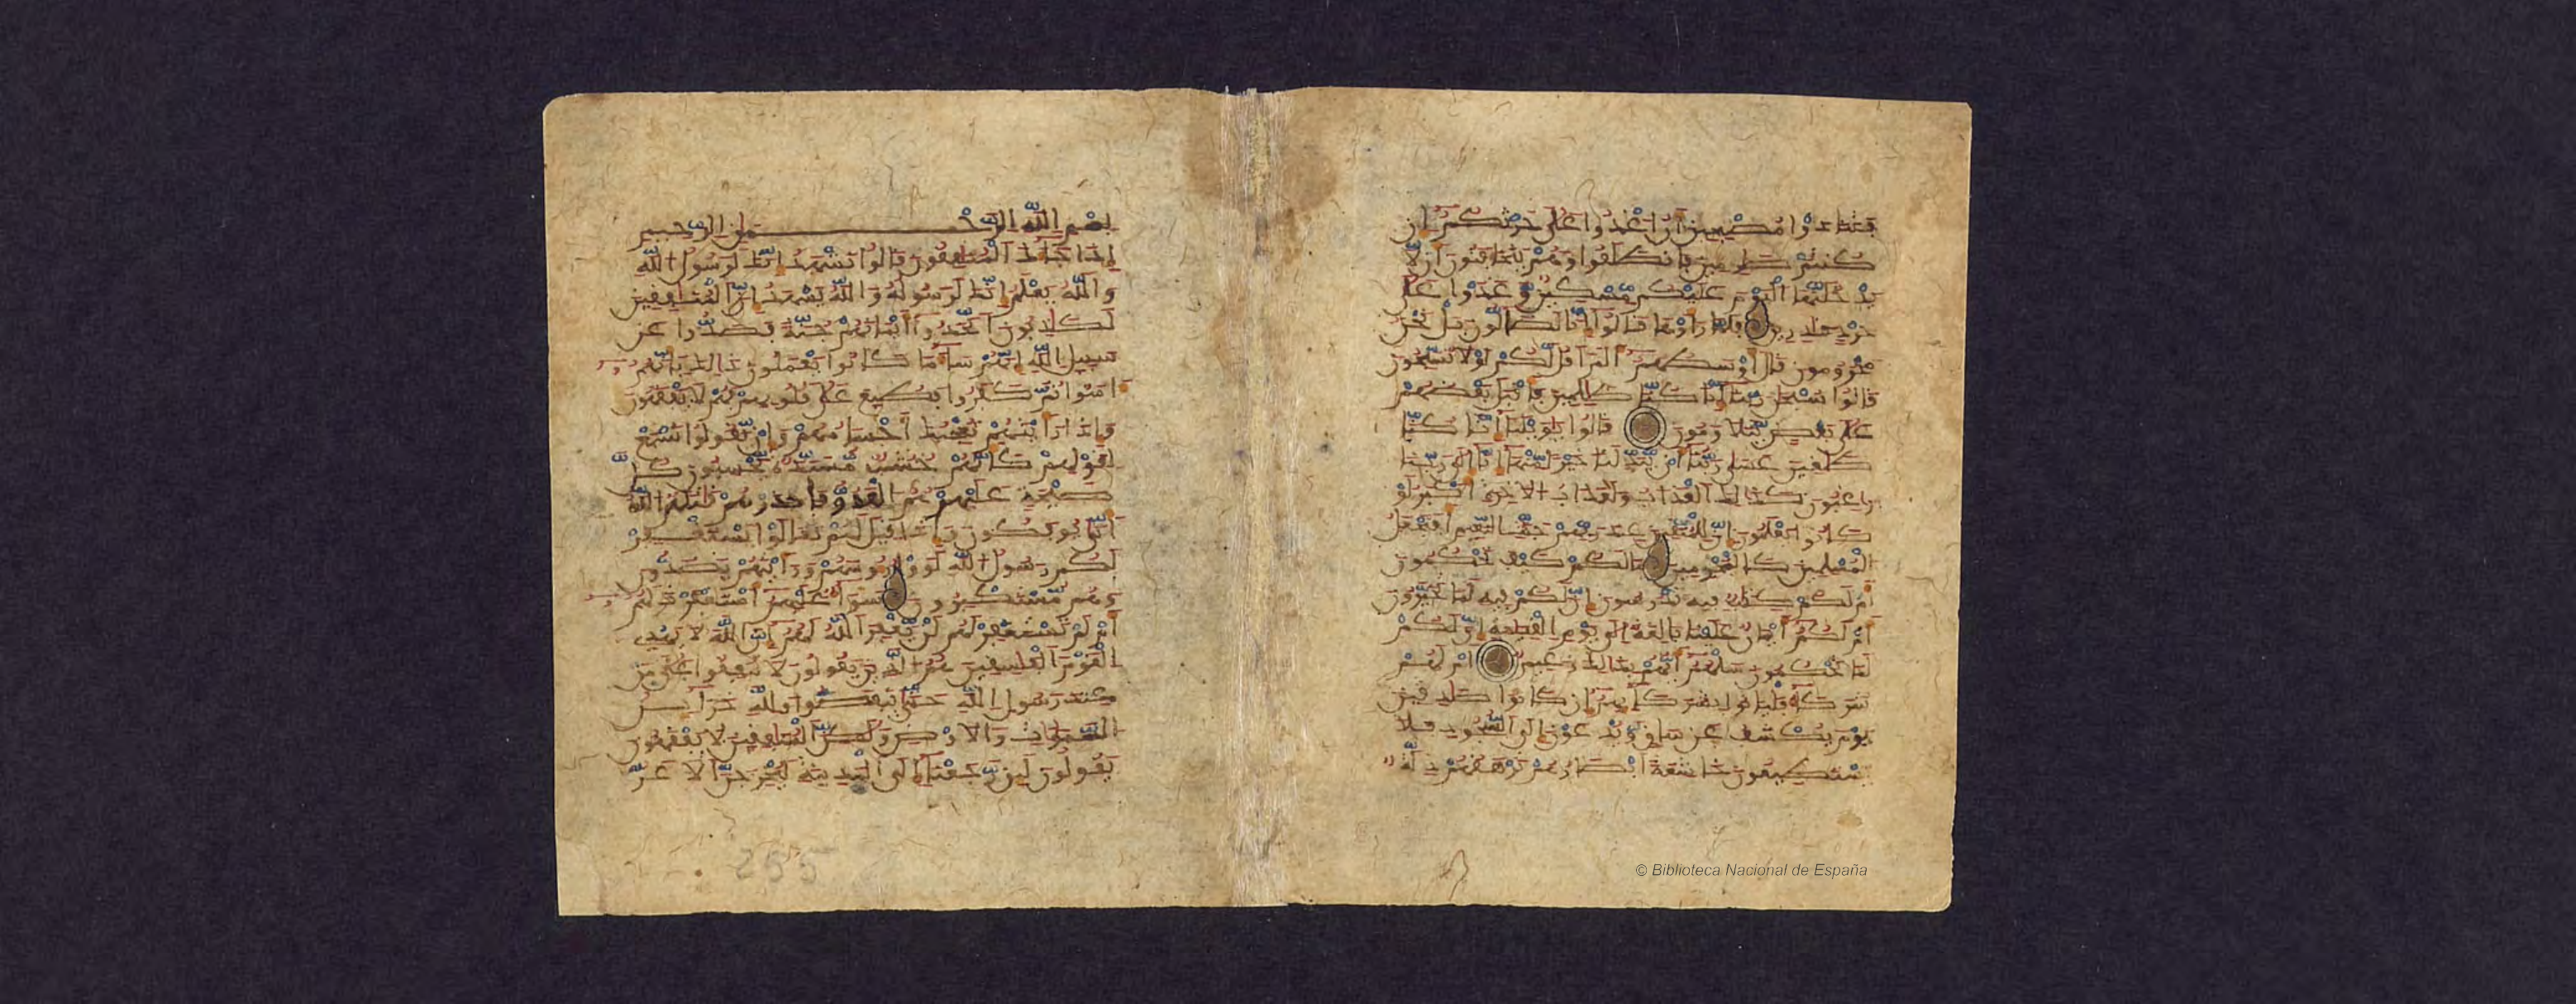 فتنادوا مصبحين أن اغدوا على حرثكم إن
كنتم صارمين فانطلقوا وهم يتخافتون أن لا
يدخلنها اليوم عليكم مسكين وغدوا على
حرد قادرين فلما رأوها قالوا إنا لضالون بل نحن
محرومون قال أوسطهم ألم أقل لكم لولا تسبحون
قالوا سبحن ربنا إنا كنا ظلمين فأقبل بعضهم
على بعض يتلاومون قالوا يويلنا إنا كنا
طغين عسى ربنا أن يبدلنا خيرا منها إنا إلى ربنا
راغبون كذلك العذاب ولعذاب الاخرة أكبر لو
كانوا يعلمون إن للمتقين عند ربهم جنت النعيم أفنجعل
المسلمين كالمجرمين ما لكم كيف تحكمون
أم لكم كتب فيه تدرسون إن لكم فيه لما تخيرون
أم لكم أيمن علينا بلغة إلى يوم القيمة إن لكم
لما تحكمون سلهم أيهم بذلك زعيم أم لهم
شركاء فلياتوا بشركائهم إن كانوا صدقين
يوم يكشف عن ساق ويدعون إلى السجود فلا
يستطيعون خشعة أبصرهم ترهقهم ذلة
بسم الله الرحمن الرحيم
إذا جاءك المنفقون قالوا نشهد إنك لرسول الله
والله يعلم إنك لرسوله والله يشهد إن المنفقين
لكذبون اتخذوا أيمنهم جنة فصدوا عن
سبيل الله إنهم ساء ما كانوا يعملون ذلك بأنهم
ءامنوا ثم كفروا فطبع على قلوبهم فهم لا يفقهون
وإذا رأيتهم تعجبك أجسامهم وإن يقولوا تسمع
لقولهم كأنهم خشب مسندة يحسبون كل
صيحة عليهم هم العدو فاحذرهم قتلهم الله
أنى يوفكون وإذا قيل لهم تعالوا يستغفر
لكم رسول الله لووا رءوسهم ورأيتهم يصدون
وهم مستكبرون سواء عليهم أستغفرت لهم
أم لم تستغفر لهم لن يغفر الله لهم إن الله لا يهدي
القوم الفسقين هم الذين يقولون لا تنفقوا على من
عند رسول الله حتى ينفضوا ولله خزائن
السموت والارض ولكن المنفقين لا يفقهون
يقولون لئن رجعنا إلى المدينة ليخرجن الاعز
255
© Biblioteca Nacional de España